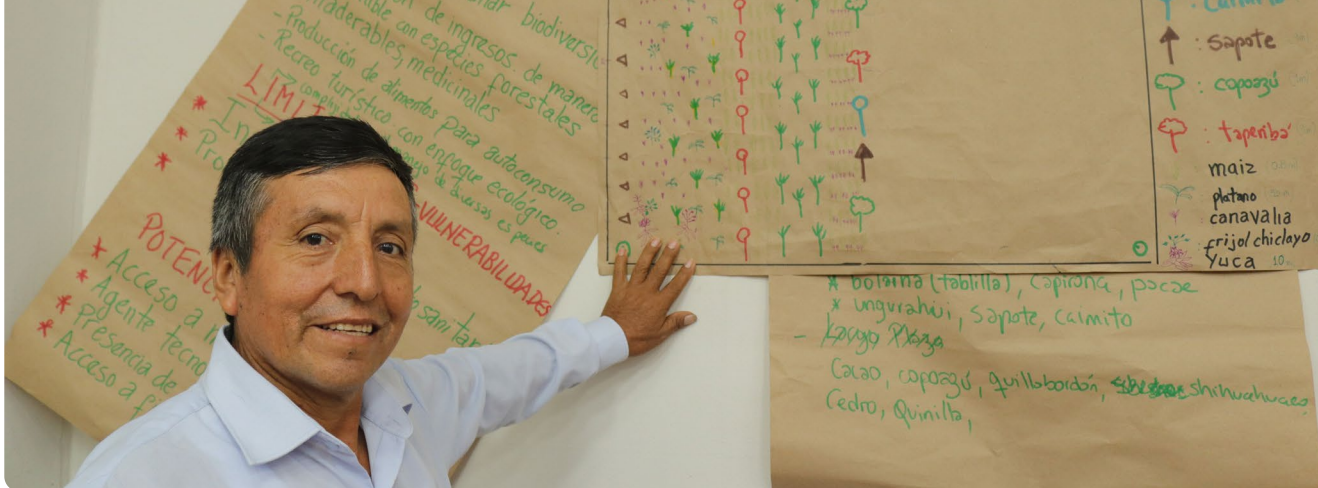 biodiversi
de ingresos. de manera
con especies forestales
maderables, medicinales
- Producción de alimentos para autoconsumo
- Recreo turístico con enfoque ecológico.
manejo de diversas es pecies
* LIMI
* In
* Pro
*
VULNERABILIDADES
POTEN
* Acceso a
* Agente tecno
sanitar
* Presencia de
* Acceso a
: Caimito
: Sapote
: copoazú
: taperibá
maiz
platano
canavalia
frijol chiclayo
Yuca
* bolaina (tablilla), Capirona, pacae
* ungurahui, Sapote, Caimito
- Largo Plazo
Cacao, copoazú, quillabordón, shihuahuaco
Cedro, Quinilla,